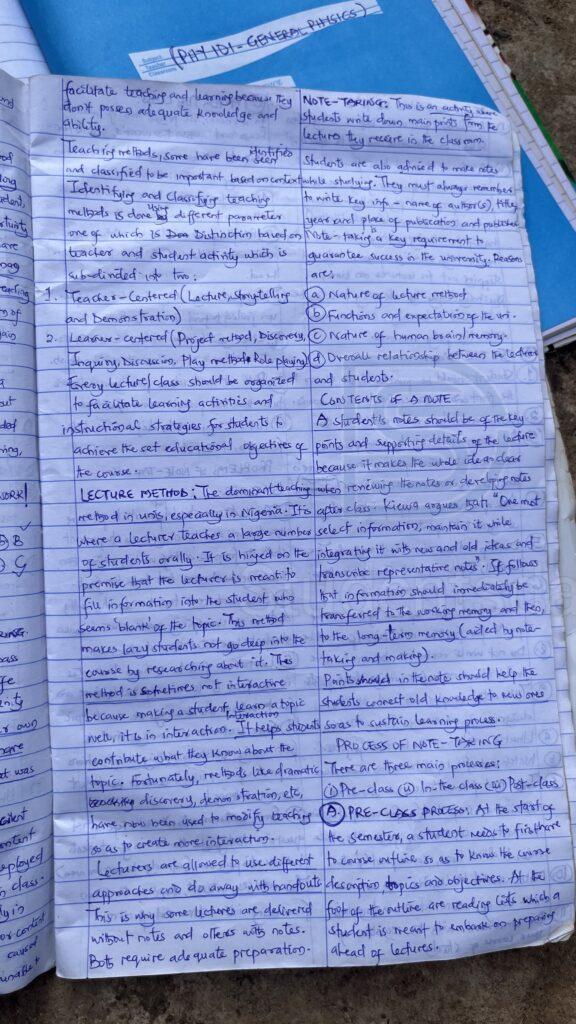 (PHY 101 - GENERAL PHYSICS)
facilitate teaching and learning because they
don't possess adequate knowledge and
ability.
Teaching methods, some have been identified
and classified to be important based on context
Identifying and Classifying teaching
methods is done using different parameter
one of which is Distinction based on
teacher and student activity which is
sub-divided into two:
1. Teacher-Centered (Lecture, Storytelling
and Demonstration)
2. Learner-centered (Project method, Discovery,
Inquiry, Discussion, Play method & Role playing)
Every lecture/class should be organized
to facilitate learning activities and
instructional strategies for students to
achieve the set educational objectives of
the course.
LECTURE METHOD: The dominant teaching
method in unis, especially in Nigeria. It is
where a lecturer teaches a large number
of students orally. It is hinged on the
premise that the lecturer is meant to
fill information into the student who
seems 'blank' of the topic. This method
makes lazy students not go deep into the
course by researching about it. This
method is sometimes not interactive
because making a student learn a topic
well, it is in interaction. Interaction It helps students
contribute what they know about the
topic. Fortunately, methods like dramatic
discovery, demonstration, etc,
have now been used to modify teaching
so as to create more interaction.
Lecturers are allowed to use different
approaches and do away with handouts
This is why some lectures are delivered
without notes and others with notes.
Both require adequate preparation.
NOTE-TAKING: This is an activity where
students write down main points from the
lectures they receive in the classroom.
Students are also advised to make notes
while studying. They must always remember
to write key info - name of author(s), title,
year and place of publication and publisher
Note-taking is a key requirement to
guarantee success in the university. Reasons
are;
(a) Nature of lecture method
(b) Functions and expectation of the uni.
(c) Nature of human brain/memory.
(d) Overall relationship between the lecturer
and students.
CONTENTS OF A NOTE
A student's notes should be of the key
points and supporting details of the lecture
because it makes the whole idea clear
when reviewing the notes or developing notes
after class. Kiewa argues that "One must
select information, maintain it while
integrating it with new and old ideas and
transcribe representative notes". It follows
that information should immediately be
transferred to the working memory and then,
to the long-term memory (aided by note-
taking and making).
Points should in the note should help the
students connect old knowledge to new ones
so as to sustain learning process.
PROCESS OF NOTE-TAKING
There are three main processes;
(i) Pre-class (ii) In-the class (iii) Post-class
(A) PRE-CLASS PROCESS: At the start of
the semester, a student needs to first have
to course outline so as to know the course
description, topics and objectives. At the
foot of the outline are reading lists which a
student is meant to embark on preparing
ahead of lectures.